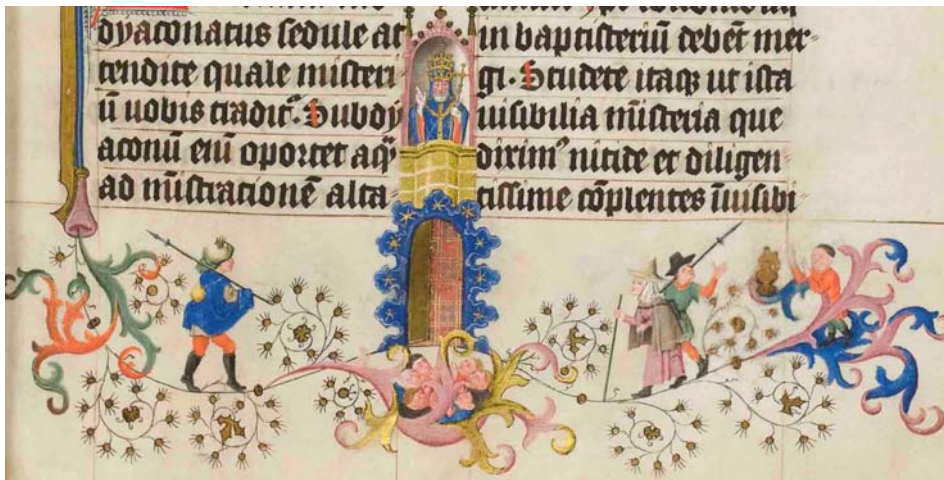 dyaconatus sedule at
tendite quale misteri
ū uobis tradit᷑. Subdy
aconū eñi oportet aqȝ
ad mīstracionē alta
in baptisteriū debēt mer⸗
gi. Studete itaqȝ ut ista
uisibilia misteria que
diximꝰ nitide et diligen⸗
tissime cōplentes īuisibi⸗